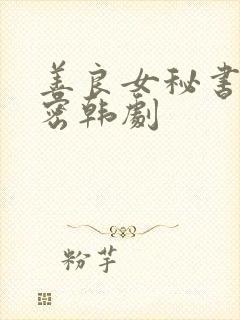 善良女秘书
密韩劇
粉芋